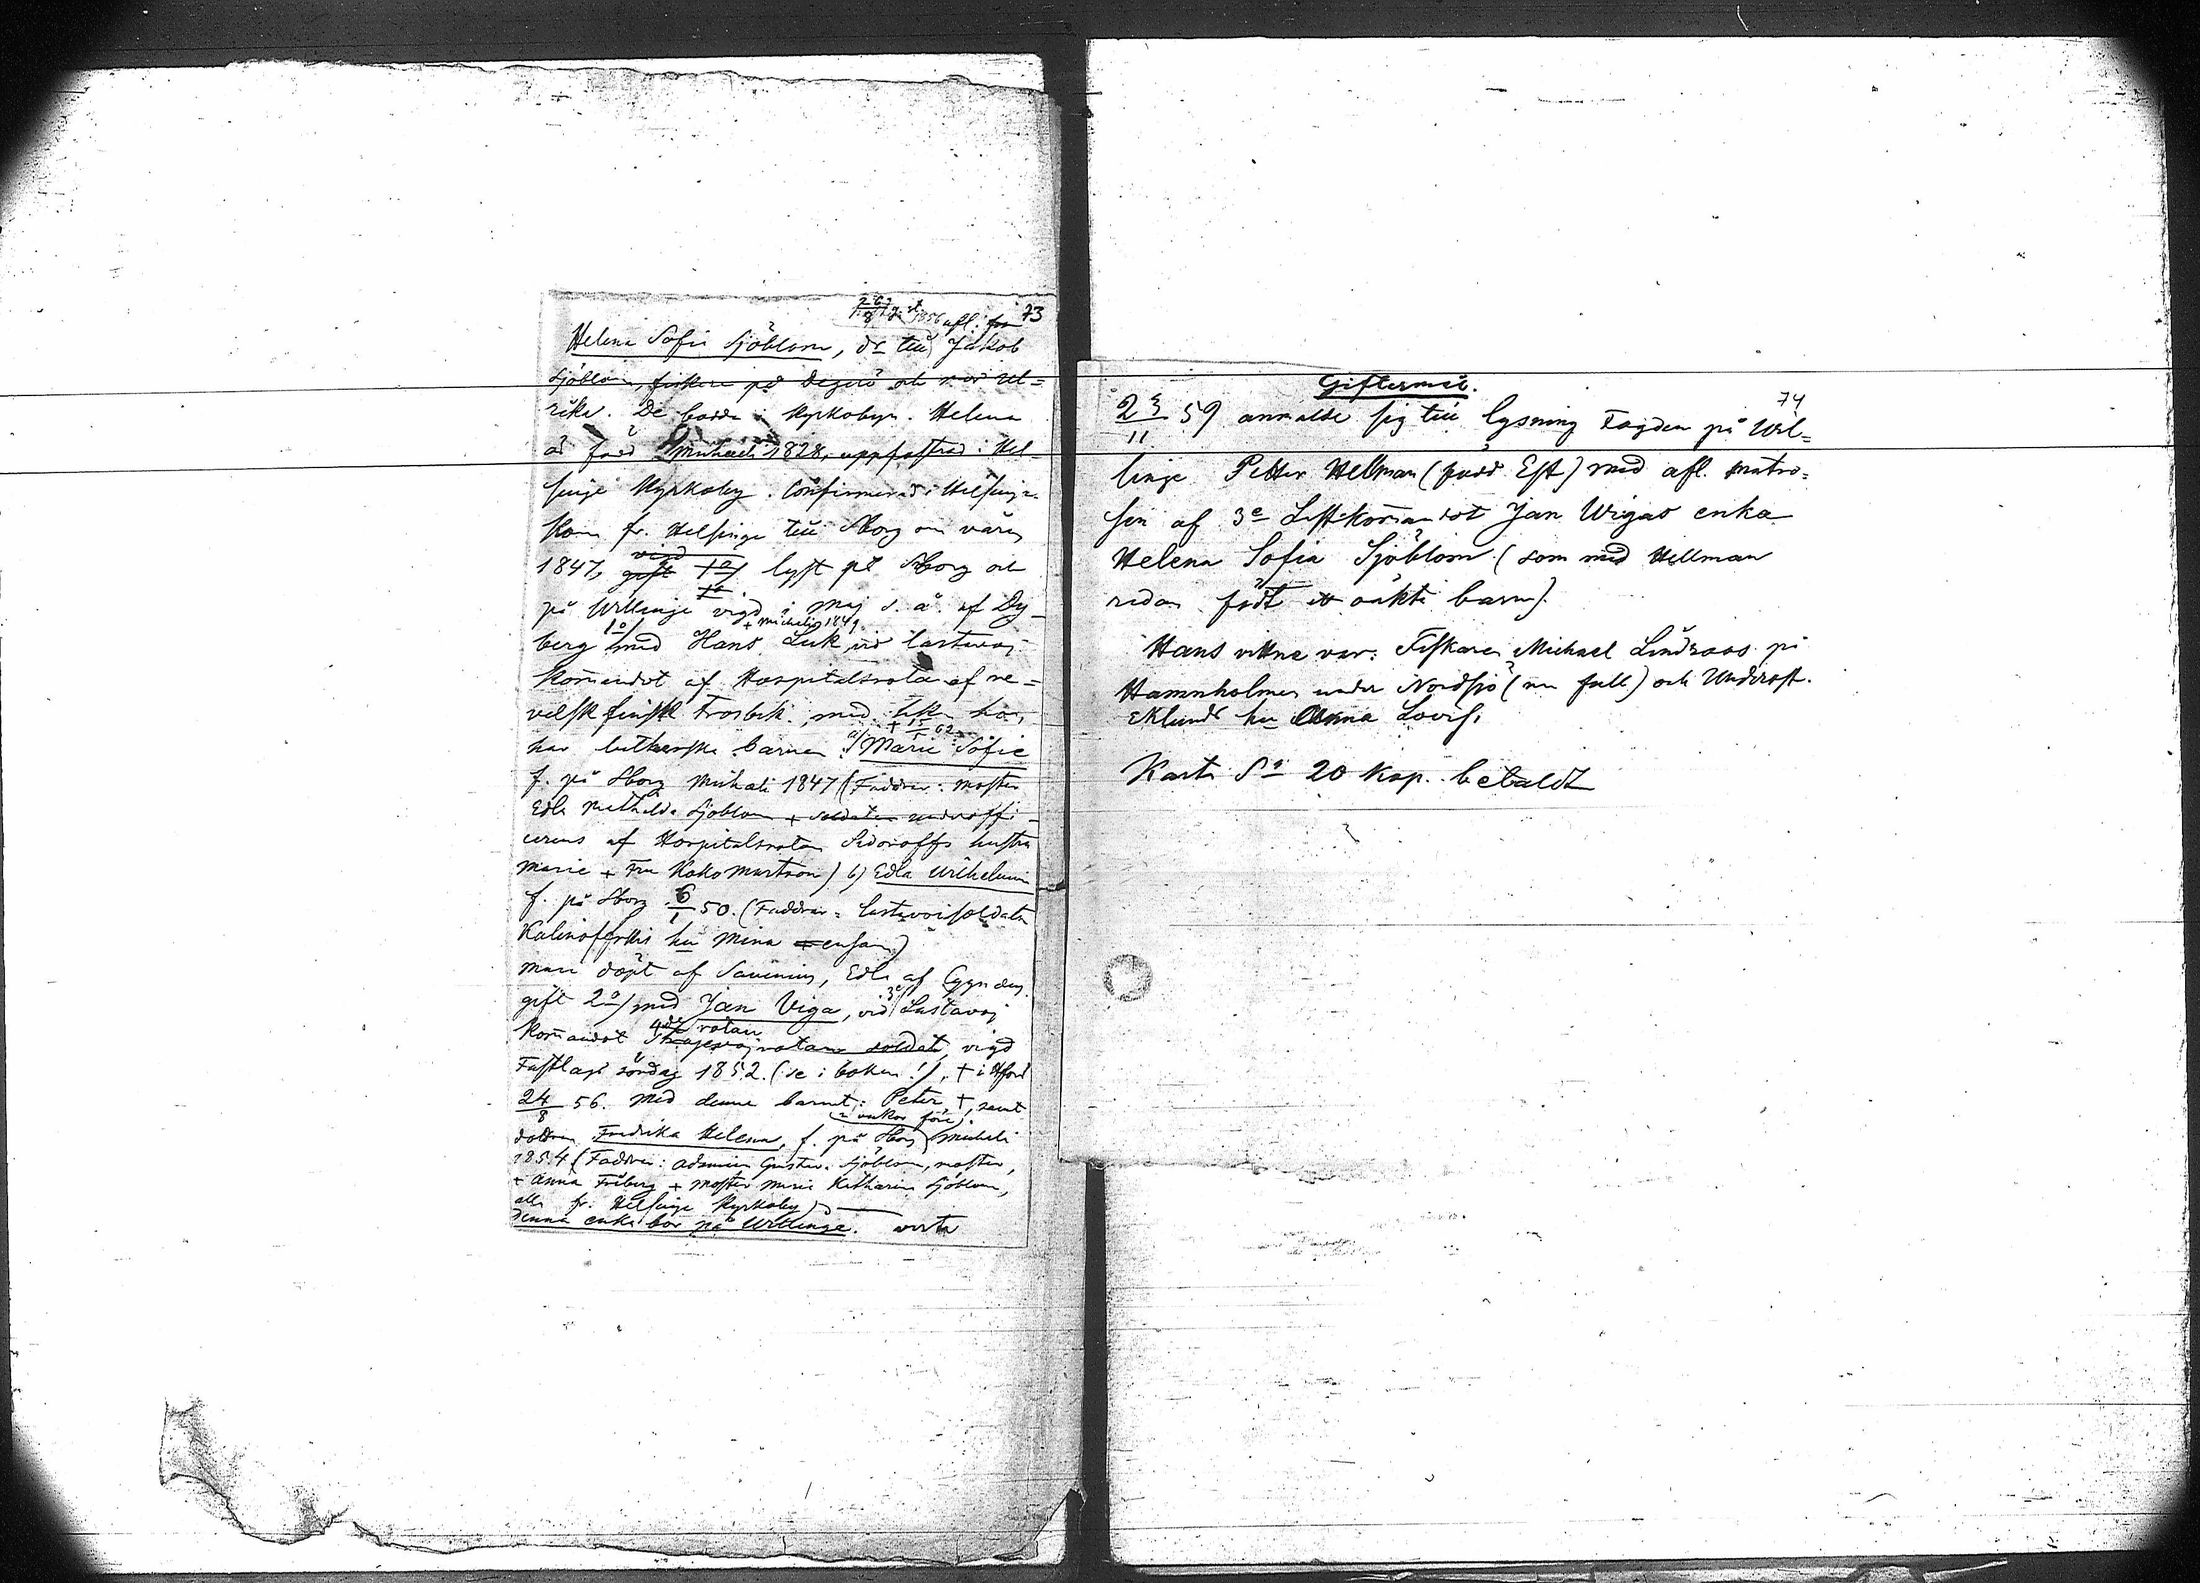 73
Helena Sofia Sjöblom, dr till Jakob
Sjöblom, fiskare på Degerö och mor Ul=
rika. De bodde i Kyrkobyn. Helena
är född Michaeli 1828, uppfostrad i Hel-
singe Kyrkoby. Confirmerad i Helsinge.
Kom fr. Helsinge till Sborg om våren
1847, vigd gift 1o) lyst på Sborg och
på Willinge vigd i Maj s. å. af Dy-
berg 1o) med Hans Luk vid lastavoj
+ Micheli 1849
Komandot af Hospitalsrotan af re=
velsk finskl. med
har lutherska barnen a) Maria Sofie
f. på Sborg Michaeli 1847 (Faddrar: moster
Edla Mathilda Sjöblom + soldaten underoffi-
cerens af Hospitalsrotan Sidoroffs hustru
Marie + Fru Kokomurtson) b) Edla Wilhelmin
f. på Sborg 6/1 50. (Faddrar: lastavoisoldaten
Kalinoffskis hu Mina ensam)
Mari döpt af Savenius, Edla af Cygnæus.
gift 2o) med Jan Viga, vid 3e Lastavoj
Komandot 4de rotan soldat, vigd
Fastlags söndag 1852. (se i boken!), + i Hfors
24/8 56. Med denne barnet: Peter +, samt
(2 veckor före).
dottren Fredrika Helena, f. på Sborg Micheli
1854 (Faddrar: Adamina Gustava Sjöblom, moster,
+ Anna Friberg + moster Marie Katharina Sjöblom,
alla fr. Helsinge Kyrkoby)
Denna enka bor på Willinge. verte
Giftermål.
74
23/11 59 anmälde sig till lysning Fogden på Wil=
linge Petter Hellman (född Est) med afl. matro=
sen af 3e Last-Komandot Jan Wigas enka
Helena Sofia Sjöblom (som med Hellman
redan födt ett oäkta barn).
Hans vittne var: Fiskaren Michael Lindroos på
Hamnholmen under Nordsjö och Underoff.
Eklunds hu Anna Lovis.
Karta Sa 20 Kop. betaldt